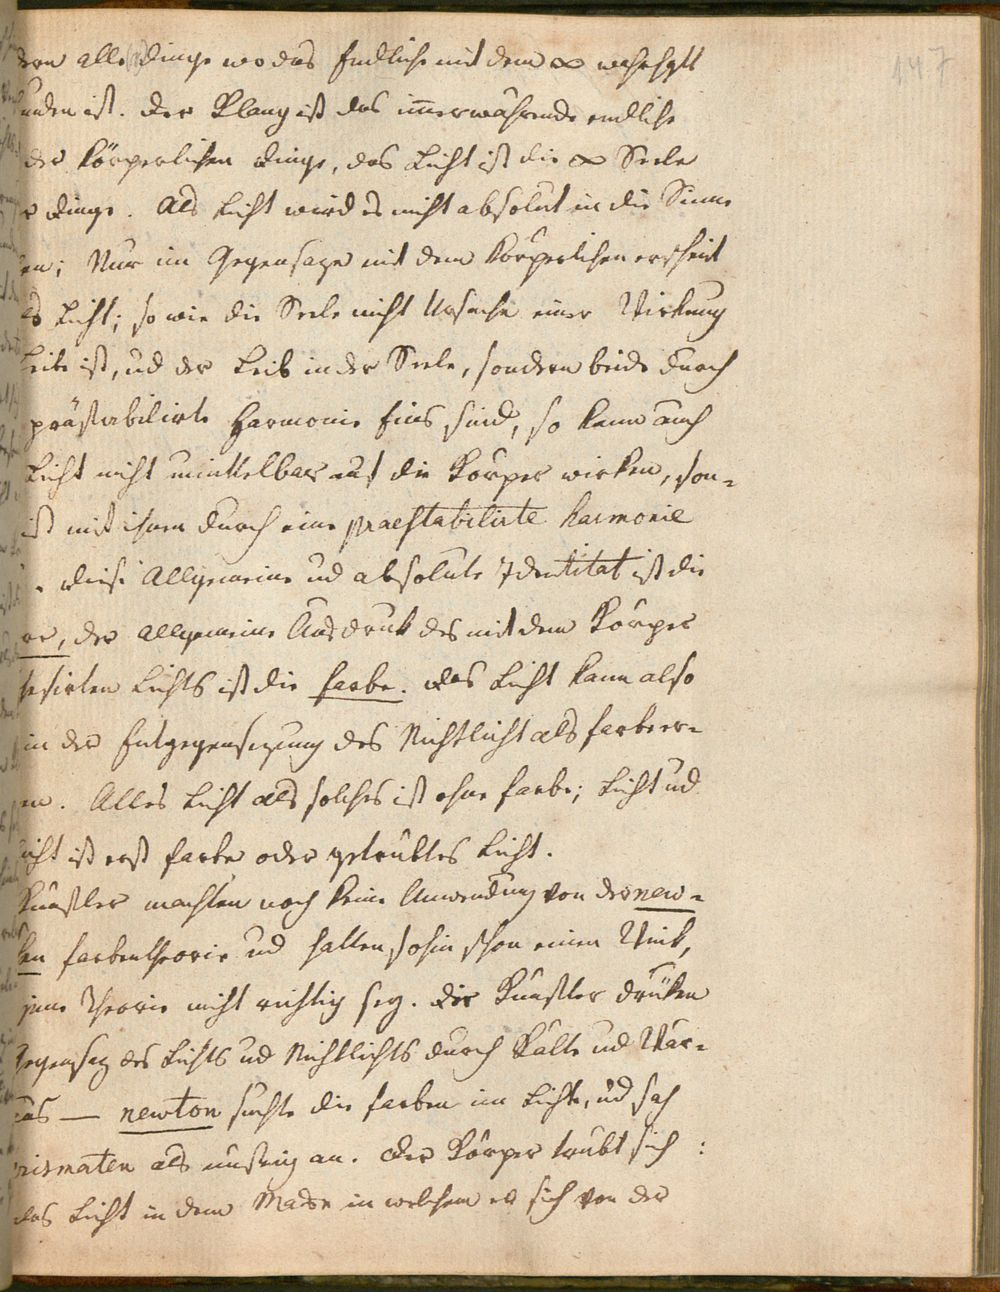 dern alle Dinge wo das Endliche mit dem ∞
unden ist. Der Klang ist das im̄erwährende endliche
der körperlichen Dinge, das Licht ist die ∞ Seele
r Dinge. Als Licht wird es nicht absolut in die Sinne
en; Nur im Gegensaze mit dem Körperlichen erscheint
es Licht; so wie die Seele nicht Ursache einer Wirkung
Leibe ist, ud der Leib in der Seele, sondern beide durch
prästabilirte Harmonie Eins sind, so kann auch
Licht nicht unmittelbar auf die Körper wirken, son=
ist mit ihnen durch eine praestabilirte harmonie
. Diese Allgemeine ud absolute Identitat ist die
re, der allgemeine Ausdruk des mit dem Körper
thesirten Lichts ist die farbe. Das Licht kann also
in der Entgegensezung des Nichtlicht als farbe er=
en. Alles Licht als solches ist ohne farbe; Licht ud
icht ist erst farbe oder getrübtes Licht.
Künstler machten noch keine Anwendung von der new=
hen farbentheorie ud hatten sohin schon einen Wink,
jene Theorie nicht richtig sey. Die Künstler drüken
Gegensaz des Lichts ud Nichtlichts durch Kälte ud Wär=
aus — newton suchte die farben im Lichte, ud sah
rismaten als unthätig an. Der Körper trübt sich :
das Licht in dem Maase in welchem es sich von der
147